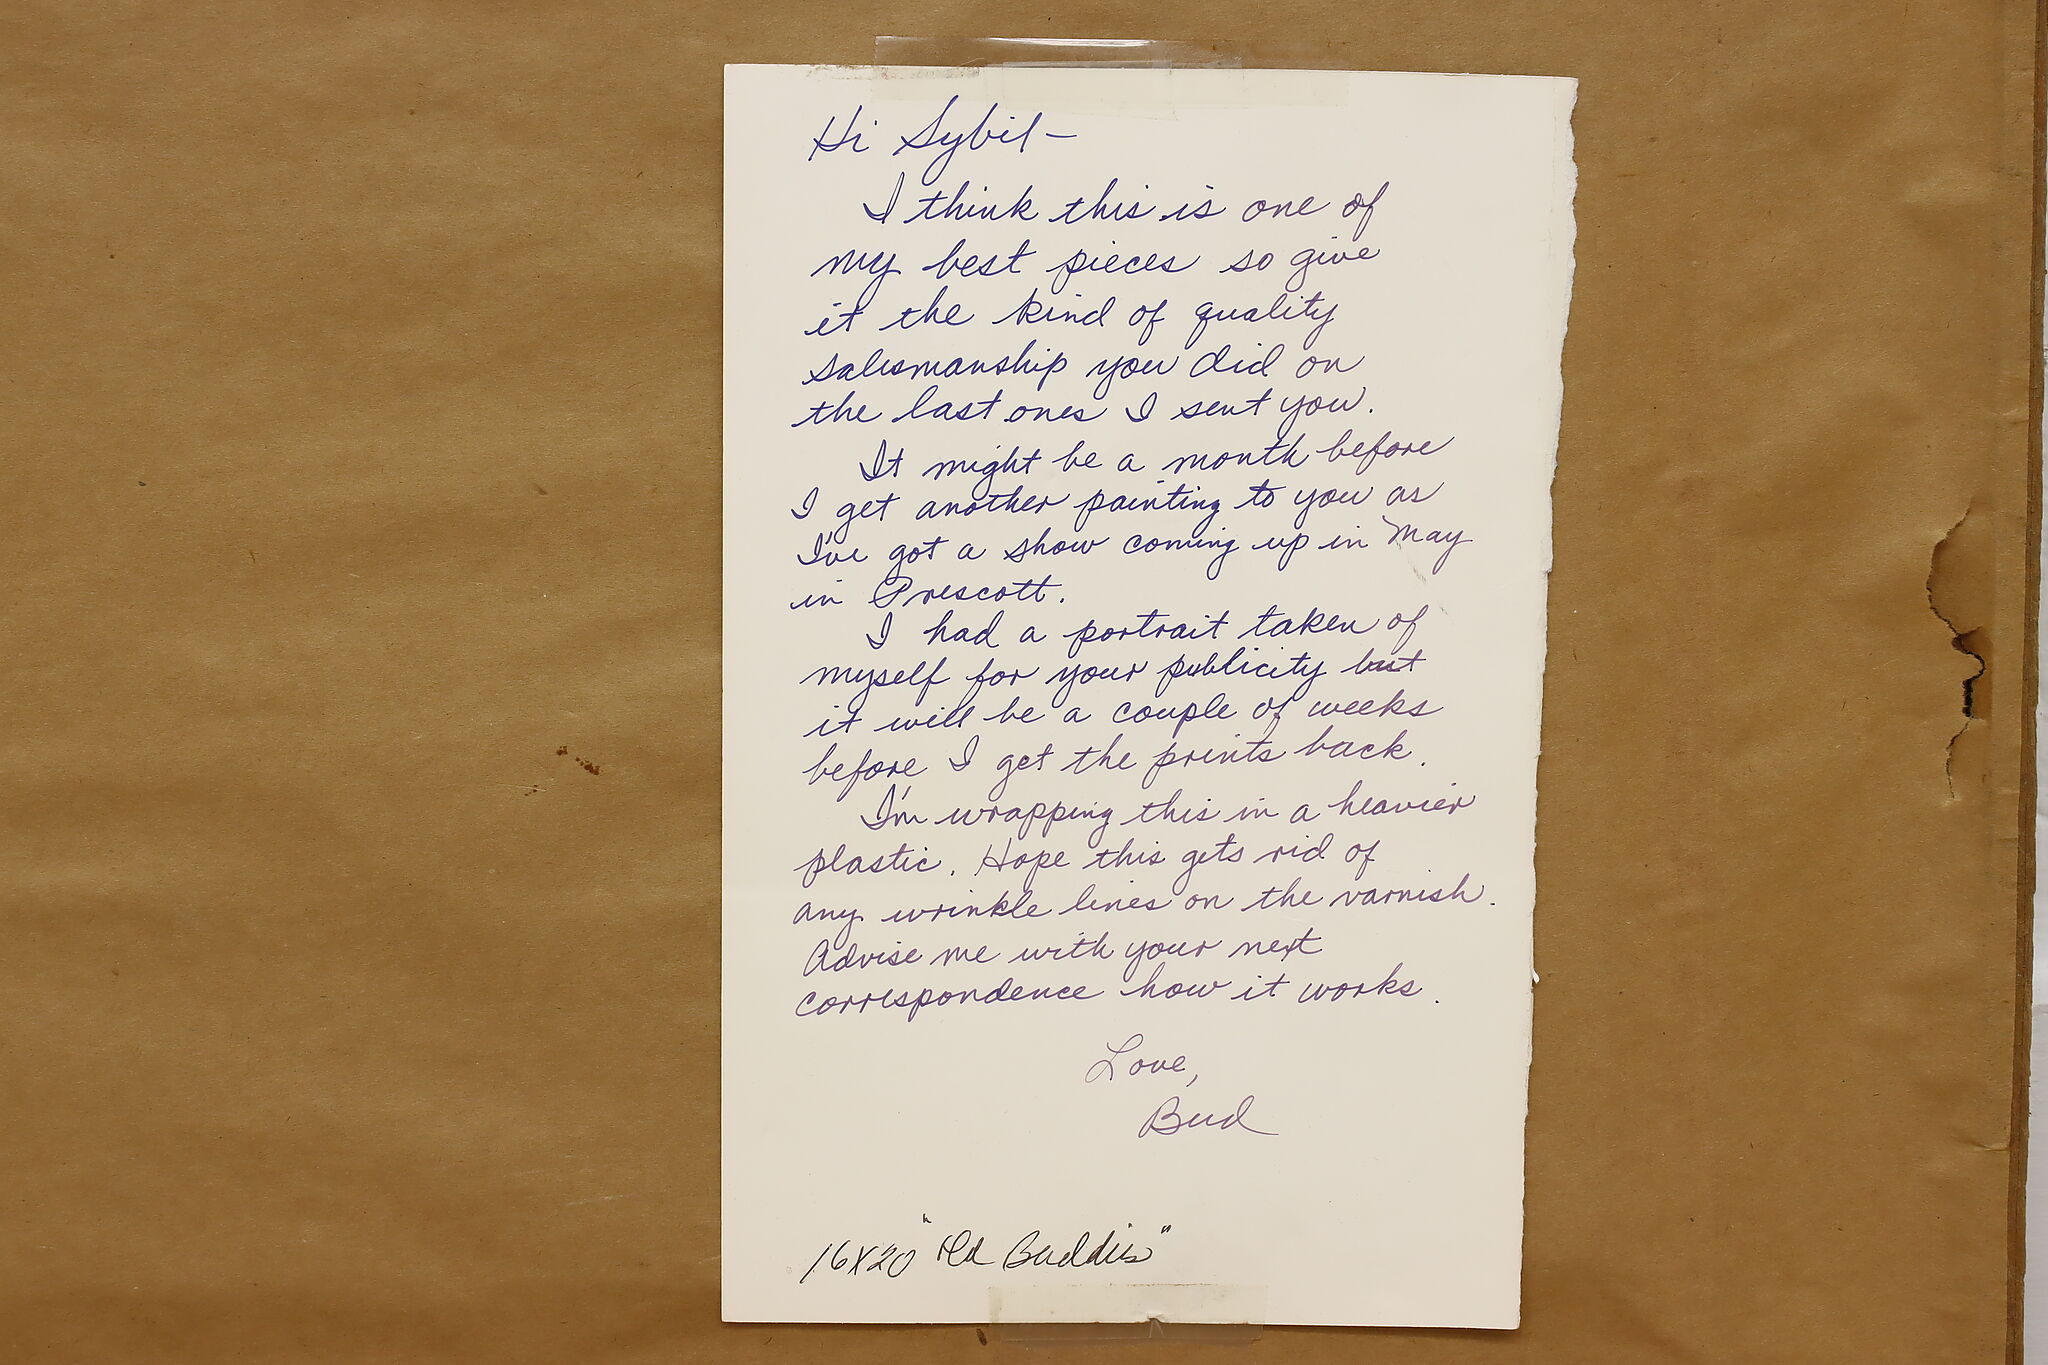 Hi Sybil—
I think this is one of
my best pieces so give
it the kind of quality
salesmanship you did on
the last ones I sent you.
It might be a month before
I get another painting to you as
I've got a show coming up in May
in Prescott.
I had a portrait taken of
myself for your publicity but
it will be a couple of weeks
before I get the prints back.
I'm wrapping this in a heavier
plastic. Hope this gets rid of
any wrinkle lines on the varnish.
Advise me with your next
correspondence how it works.
Love,
Bud
16X20 "Old Buddies"